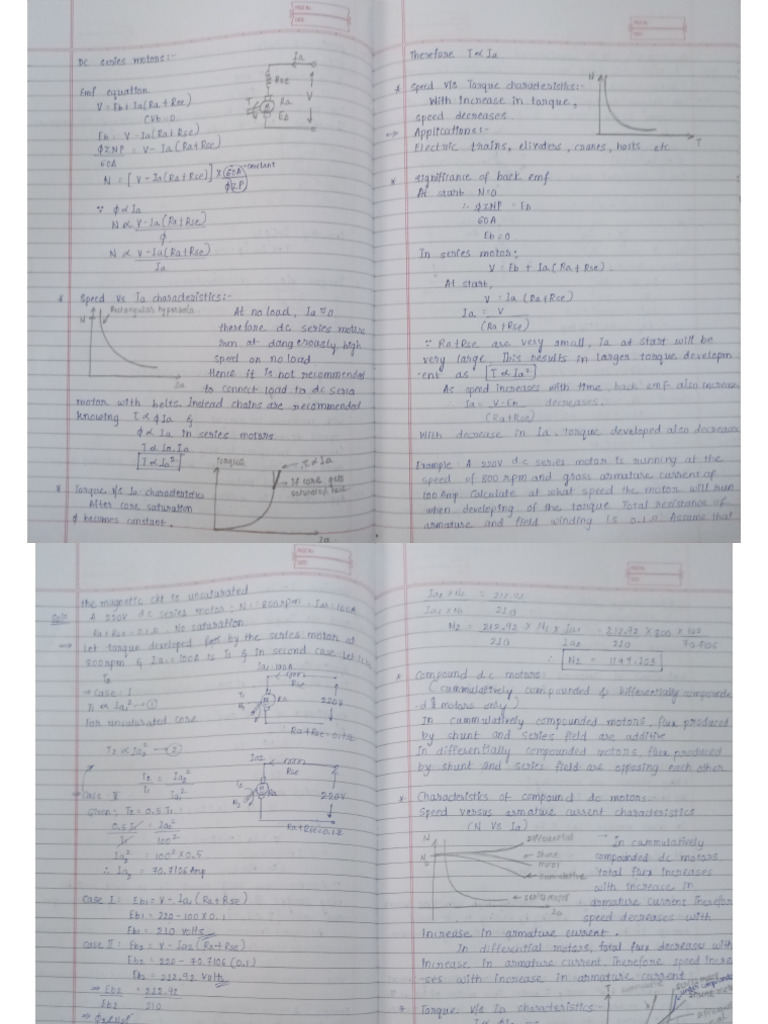 DC series motors:-
Emf equation
V = Eb + Ia (Ra + Rse)
CVb = 0
Eb = V - Ia (Ra + Rse)
ϕZNP = V - Ia (Ra + Rse)
60A
N = [V - Ia (Ra + Rse)] × (60A) constant
ϕZP
∵ ϕ ∝ Ia
N ∝ V - Ia (Ra + Rse)
ϕ
N ∝ V - Ia (Ra + Rse)
Ia
Ia
Rse
Ra
V
Eb
Speed Vs Ia characteristics:-
Rectangular hyperbola
N
Ia
At no load, Ia = 0
therefore dc series motors
run at dangerously high
speed on no load
Hence it is not recommended
to connect load to dc seris
motor with belts. Instead chains are recommended
knowing T ∝ ϕIa &
ϕ ∝ Ia in series motors
T ∝ Ia.Ia
T ∝ Ia²
Torque
T ∝ Ia
If core gets
saturated here
Ia
Torque v/s Ia characteristics
After core saturation
ϕ becomes constant.
Therefore T ∝ Ia
Speed v/s Torque characteristics:-
With increase in torque,
speed decreases.
N
T
Applications:-
Electric trains, elivaters, cranes, hoists etc
* significance of back emf
At start N=0
∴ ϕZNP = Eb
60A
Eb = 0
In series motor;
V = Eb + Ia (Ra + Rse).
At start,
V = Ia (Ra + Rse)
Ia = V
(Ra + Rse)
∵ Ra + Rse are very small, Ia at start will be
very large. This results in larger torque developm
-ent as T ∝ Ia²
As speed increases with time, back emf also increase
∴ Ia = V - Eb decreases.
(Ra + Rse)
With decrease in Ia, torque developed also decrease
Example: A 220V d.c series motor is running at the
speed of 800 rpm and gross armature current of
100 Amp calculate at what speed the motor will run
when developing of the torque Total resistance of
armature and field winding is 0.1Ω. Assume that
the magnetic ckt is unsaturated
A 220V dc series motor; N = 800rpm, Ia = 100A
No saturation
Let torque developed by the series motor at
800rpm & Ia1 = 100A is T1 & in second case let it be
T2
⇒ Case: I
T1 ∝ Ia1² —①
For unsaturated core
Ia 100A
Rse
Ra
220V
T2 ∝ Ia2² —②
T2 = Ia2²
T1 Ia1²
⇒ Case - II
Given: T2 = 0.5 T1
0.5 T1 = Ia2²
T1 100²
Ia2² = 100² × 0.5
∴ Ia2 = 70.7106 Amp
Ia2
Rse
Ra
220V
Ra + Rse = 0.1Ω
Case I: Eb1 = V - Ia1 (Ra + Rse)
Eb1 = 220 - 100 × 0.1
Eb1 = 210 volts
Case II: Eb2 = V - Ia2 (Ra + Rse)
Eb2 = 220 - 70.7106 (0.1)
Eb2 = 212.92 Volts
⇒ Eb2 = 212.92
Eb2 210
Ia2 × N2 = 212.92
Ia1 × N1 210
N2 = 212.92 × N1 × Ia1 = 212.92 × 800 × 100
210 Ia2 210 70.7106
∴ N2 =
* Compound d.c motors:
(cummulatively compounded & Differentially compounde
d motors only)
In cummulatively compounded motors, flux produced
by shunt and series field are additive
In differentially compounded motors, flux produced
by shunt and series field are opposing each other
* Characteristics of compound dc motors:-
Speed versus armature current characteristics
(N Vs Ia)
N
Differential
shunt
motor
cumulative
series motor
Ia
→ In cummulatively
compounded dc motors
total flux increases
with increace in
armature current Therefore
speed decreases with
increase in armature current.
In differential motors, total flux decrease with
increase in armature current. Therefore speed increa
ses with increase in armature current
* Torque v/s Ia characteristics:-
T